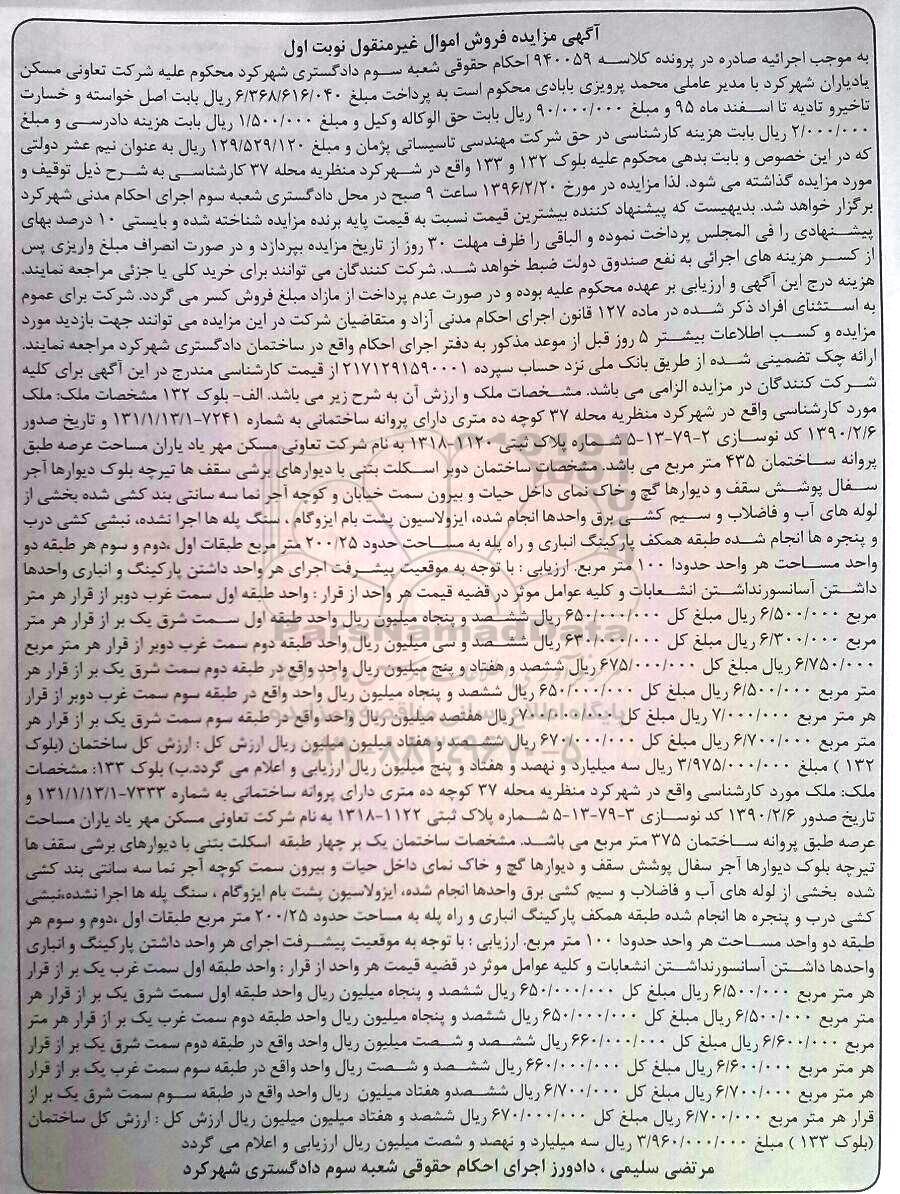 آگهی مزایده فروش اموال غیرمنقول نوبت اول
به موجب اجرائیه صادره در پرونده کلاسه ۹۴۰۰۵۹ احکام حقوقی شعبه سوم دادگستری شهرکرد محکوم علیه شرکت تعاونی مسکن
یادیاران شهرکرد با مدیر عاملی محمد پرویزی بابادی محکوم است به پرداخت مبلغ ۶/۳۶۸/۶۱۶/۰۴۰ ریال بابت اصل خواسته و خسارت
تاخیرو تادیه تا اسفند ماه ۹۵ و مبلغ ۹۰/۰۰۰/۰۰۰ ریال بابت حق الوکاله وکیل و مبلغ ۱/۵۰۰/۰۰۰ ریال بابت هزینه دادرسی و مبلغ
۲/۰۰۰/۰۰۰ ریال بابت هزینه کارشناسی در حق شرکت مهندسی تاسیساتی پژمان و مبلغ ۱۲۹/۵۲۹/۱۲۰ ریال به عنوان نیم عشر دولتی
که در این خصوص و بابت بدهی محکوم علیه بلوک ۱۳۲ و ۱۳۳ واقع در شهرکرد منظریه محله ۳۷ کارشناسی به شرح ذیل توقیف و
مورد مزایده گذاشته می شود. لذا مزایده در مورخ ۱۳۹۶/۲/۲۰ ساعت ۹ صبح در محل دادگستری شعبه سوم اجرای احکام مدنی شهرکرد
برگزار خواهد شد. بدیهیست که پیشنهاد کننده بیشترین قیمت نسبت به قیمت پایه برنده مزایده شناخته شده و بایستی ۱۰ درصد بهای
پیشنهادی را فی المجلس پرداخت نموده و الباقی را ظرف مهلت ۳۰ روز از تاریخ مزایده بپردازد و در صورت انصراف مبلغ واریزی پس
از کسر هزینه های اجرائی به نفع صندوق دولت ضبط خواهد شد. شرکت کنندگان می توانند برای خرید کلی یا جزئی مراجعه نمایند.
هزینه درج این آگهی و ارزیابی بر عهده محکوم علیه بوده و در صورت عدم پرداخت از مازاد مبلغ فروش کسر می گردد. شرکت برای عموم
به استثنای افراد ذکر شده در ماده ۱۲۷ قانون اجرای احکام مدنی آزاد و متقاضیان شرکت در این مزایده می توانند جهت بازدید مورد
مزایده و کسب اطلاعات بیشتر ۵ روز قبل از موعد مذکور به دفتر اجرای احکام واقع در ساختمان دادگستری شهرکرد مراجعه نمایند.
ارائه چک تضمینی شده از طریق بانک ملی نزد حساب سپرده ۲۱۷۱۲۹۱۵۹۰۰۰۱ از قیمت کارشناسی مندرج در این آگهی برای کلیه
شرکت کنندگان در مزایده الزامی می باشد. مشخصات ملک و ارزش آن به شرح زیر می باشد. الف- بلوک ۱۳۲ مشخصات ملک: ملک
مورد کارشناسی واقع در شهرکرد منظریه محله ۳۷ کوچه ده متری دارای پروانه ساختمانی به شماره ۷۲۴۱-۱۳۱/۱/۱۳/۱ و تاریخ صدور
۱۳۹۰/۲/۶ کد نوسازی ۲-۷۹-۱۳-۵ شماره پلاک ثبتی ۱۱۲۰-۱۳۱۸ به نام شرکت تعاونی مسکن مهر یاد یاران مساحت عرصه طبق
پروانه ساختمان ۴۳۵ متر مربع می باشد. مشخصات ساختمان دوبر اسکلت بتنی با دیوارهای برشی سقف ها تیرچه بلوک دیوارها آجر
سفال پوشش سقف و دیوارها گچ و خاک نمای داخل حیات و بیرون سمت خیابان و کوچه آجر نما سه سانتی بند کشی شده بخشی از
لوله های آب و فاضلاب و سیم کشی برق واحدها انجام شده، ایزولاسیون پشت بام ایزوگام ، سنگ پله ها اجرا نشده، نبشی کشی درب
و پنجره ها انجام شده طبقه همکف پارکینگ انباری و راه پله به مساحت حدود ۲۰۰/۲۵ متر مربع طبقات اول ،دوم و سوم هر طبقه دو
واحد مساحت هر واحد حدودا ۱۰۰ متر مربع. ارزیابی : با توجه به موقعیت پیشرفت اجرای هر واحد داشتن پارکینگ و انباری واحدها
داشتن آسانسورنداشتن انشعابات و کلیه عوامل موثر در قضیه قیمت هر واحد از قرار : واحد طبقه اول سمت غرب دوبر از قرار هر متر
مربع ۶/۵۰۰/۰۰۰ ریال مبلغ کل ۶۵۰/۰۰۰/۰۰۰ ریال ششصد و پنجاه میلیون ریال واحد طبقه اول سمت شرق یک بر از قرار هر متر
مربع ۶/۳۰۰/۰۰۰ ریال مبلغ کل ۶۳۰/۰۰۰/۰۰۰ ریال ششصد و سی میلیون ریال واحد طبقه دوم سمت غرب دوبر از قرار هر متر مربع
۶/۷۵۰/۰۰۰ ریال مبلغ کل ۶۷۵/۰۰۰/۰۰۰ ریال ششصد و هفتاد و پنج میلیون ریال واحد واقع در طبقه دوم سمت شرق یک بر از قرار هر
متر مربع ۶/۵۰۰/۰۰۰ ریال مبلغ کل ۶۵۰/۰۰۰/۰۰۰ ریال ششصد و پنجاه میلیون ریال واحد واقع در طبقه سوم سمت غرب دوبر از قرار
هر متر مربع ۷/۰۰۰/۰۰۰ ریال مبلغ کل ۷۰۰/۰۰۰/۰۰۰ ریال هفتصد میلیون ریال واحد واقع در طبقه سوم سمت شرق یک بر از قرار هر
متر مربع ۶/۷۰۰/۰۰۰ ریال مبلغ کل ۶۷۰/۰۰۰/۰۰۰ ریال ششصد و هفتاد میلیون میلیون ریال ارزش کل : ارزش کل ساختمان (بلوک
۱۳۲ ) مبلغ ۳/۹۷۵/۰۰۰/۰۰۰ ریال سه میلیارد و نهصد و هفتاد و پنج میلیون ریال ارزیابی و اعلام می گردد.ب) بلوک ۱۳۳: مشخصات
ملک: ملک مورد کارشناسی واقع در شهرکرد منظریه محله ۳۷ کوچه ده متری دارای پروانه ساختمانی به شماره ۷۳۳۳-۱۳۱/۱/۱۳/۱ و
تاریخ صدور ۱۳۹۰/۲/۶ کد نوسازی ۳-۷۹-۱۳-۵ شماره پلاک ثبتی ۱۱۲۲-۱۳۱۸ به نام شرکت تعاونی مسکن مهر یاد یاران مساحت
عرصه طبق پروانه ساختمان ۳۷۵ متر مربع می باشد. مشخصات ساختمان یک بر چهار طبقه اسکلت بتنی با دیوارهای برشی سقف ها
تیرچه بلوک دیوارها آجر سفال پوشش سقف و دیوارها گچ و خاک نمای داخل حیات و بیرون سمت کوچه آجر نما سه سانتی بند کشی
شده بخشی از لوله های آب و فاضلاب و سیم کشی برق واحدها انجام شده، ایزولاسیون پشت بام ایزوگام ، سنگ پله ها اجرا نشده،نبشی
کشی درب و پنجره ها انجام شده طبقه همکف پارکینگ انباری و راه پله به مساحت حدود ۲۰۰/۲۵ متر مربع طبقات اول ،دوم و سوم هر
طبقه دو واحد مساحت هر واحد حدودا ۱۰۰ متر مربع. ارزیابی : با توجه به موقعیت پیشرفت اجرای هر واحد داشتن پارکینگ و انباری
واحدها داشتن آسانسورنداشتن انشعابات و کلیه عوامل موثر در قضیه قیمت هر واحد از قرار : واحد طبقه اول سمت غرب یک بر از قرار
هر متر مربع ۶/۵۰۰/۰۰۰ ریال مبلغ کل ۶۵۰/۰۰۰/۰۰۰ ریال ششصد و پنجاه میلیون ریال واحد طبقه اول سمت شرق یک بر از قرار هر
متر مربع ۶/۵۰۰/۰۰۰ ریال مبلغ کل ۶۵۰/۰۰۰/۰۰۰ ریال ششصد و پنجاه میلیون ریال واحد طبقه دوم سمت غرب یک بر از قرار هر متر
مربع ۶/۶۰۰/۰۰۰ ریال مبلغ کل ۶۶۰/۰۰۰/۰۰۰ ریال ششصد و شصت میلیون ریال واحد واقع در طبقه دوم سمت شرق یک بر از قرار
هر متر مربع ۶/۶۰۰/۰۰۰ ریال مبلغ کل ۶۶۰/۰۰۰/۰۰۰ ریال ششصد و شصت ریال واحد واقع در طبقه سوم سمت غرب یک بر از قرار
هر متر مربع ۶/۷۰۰/۰۰۰ ریال مبلغ کل ۶/۷۰۰/۰۰۰ ریال ششصدو هفتاد میلیون ریال واحد واقع در طبقه سوم سمت شرق یک بر از
قرار هر متر مربع ۶/۷۰۰/۰۰۰ ریال مبلغ کل ۶۷۰/۰۰۰/۰۰۰ ریال ششصد و هفتاد میلیون میلیون ریال ارزش کل : ارزش کل ساختمان
(بلوک ۱۳۳ ) مبلغ ۳/۹۶۰/۰۰۰/۰۰۰ ریال سه میلیارد و نهصد و شصت میلیون ریال ارزیابی و اعلام می گردد
مرتضی سلیمی ، دادورز اجرای احکام حقوقی شعبه سوم دادگستری شهرکرد
ParsNamadData